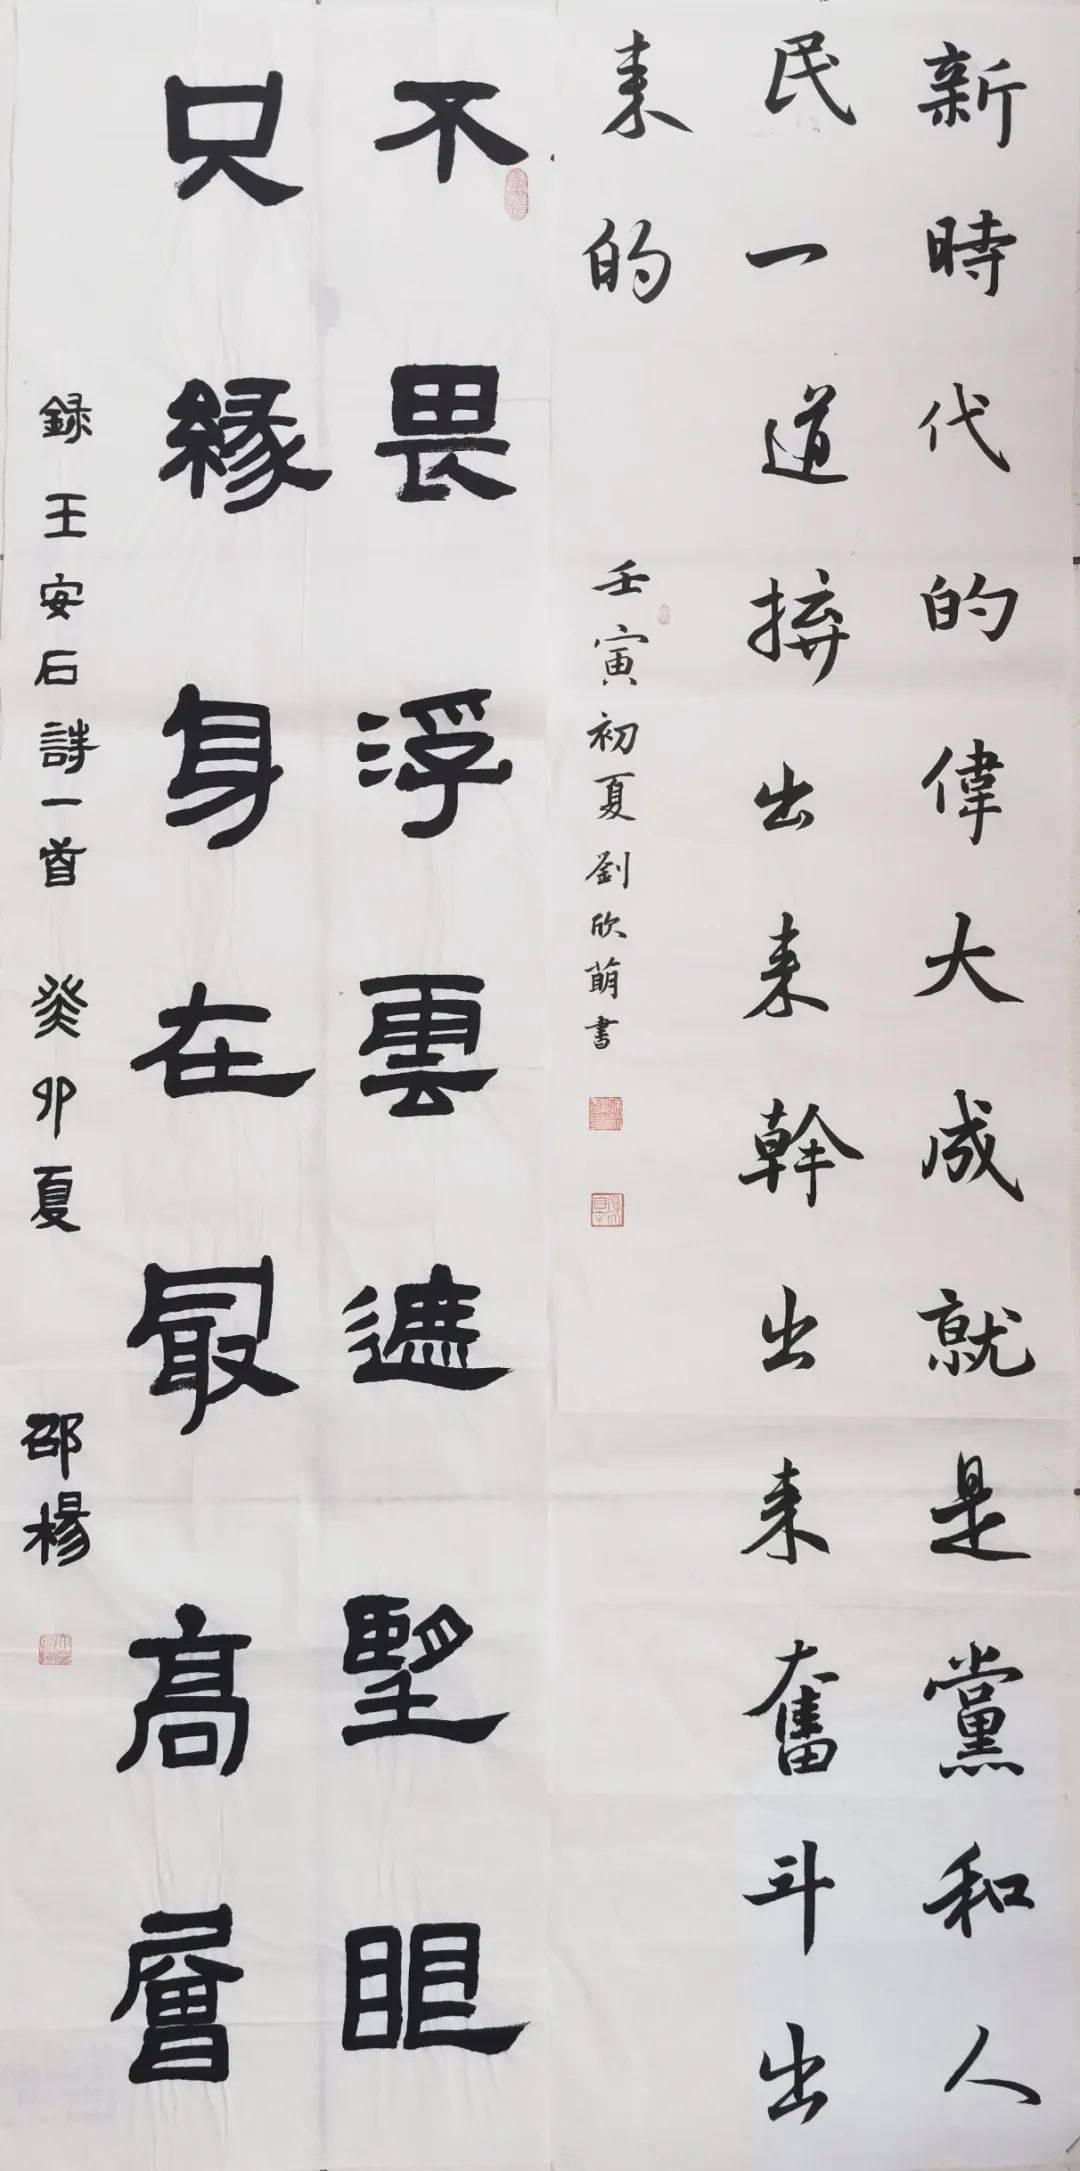 新時代的偉大成就是黨和人
民一道拚出来幹出来奮斗出
来的
壬寅初夏劉欣萌書
不畏浮雲遮望眼
只緣身在最高層
録王安石詩一首 癸卯夏
邵楊